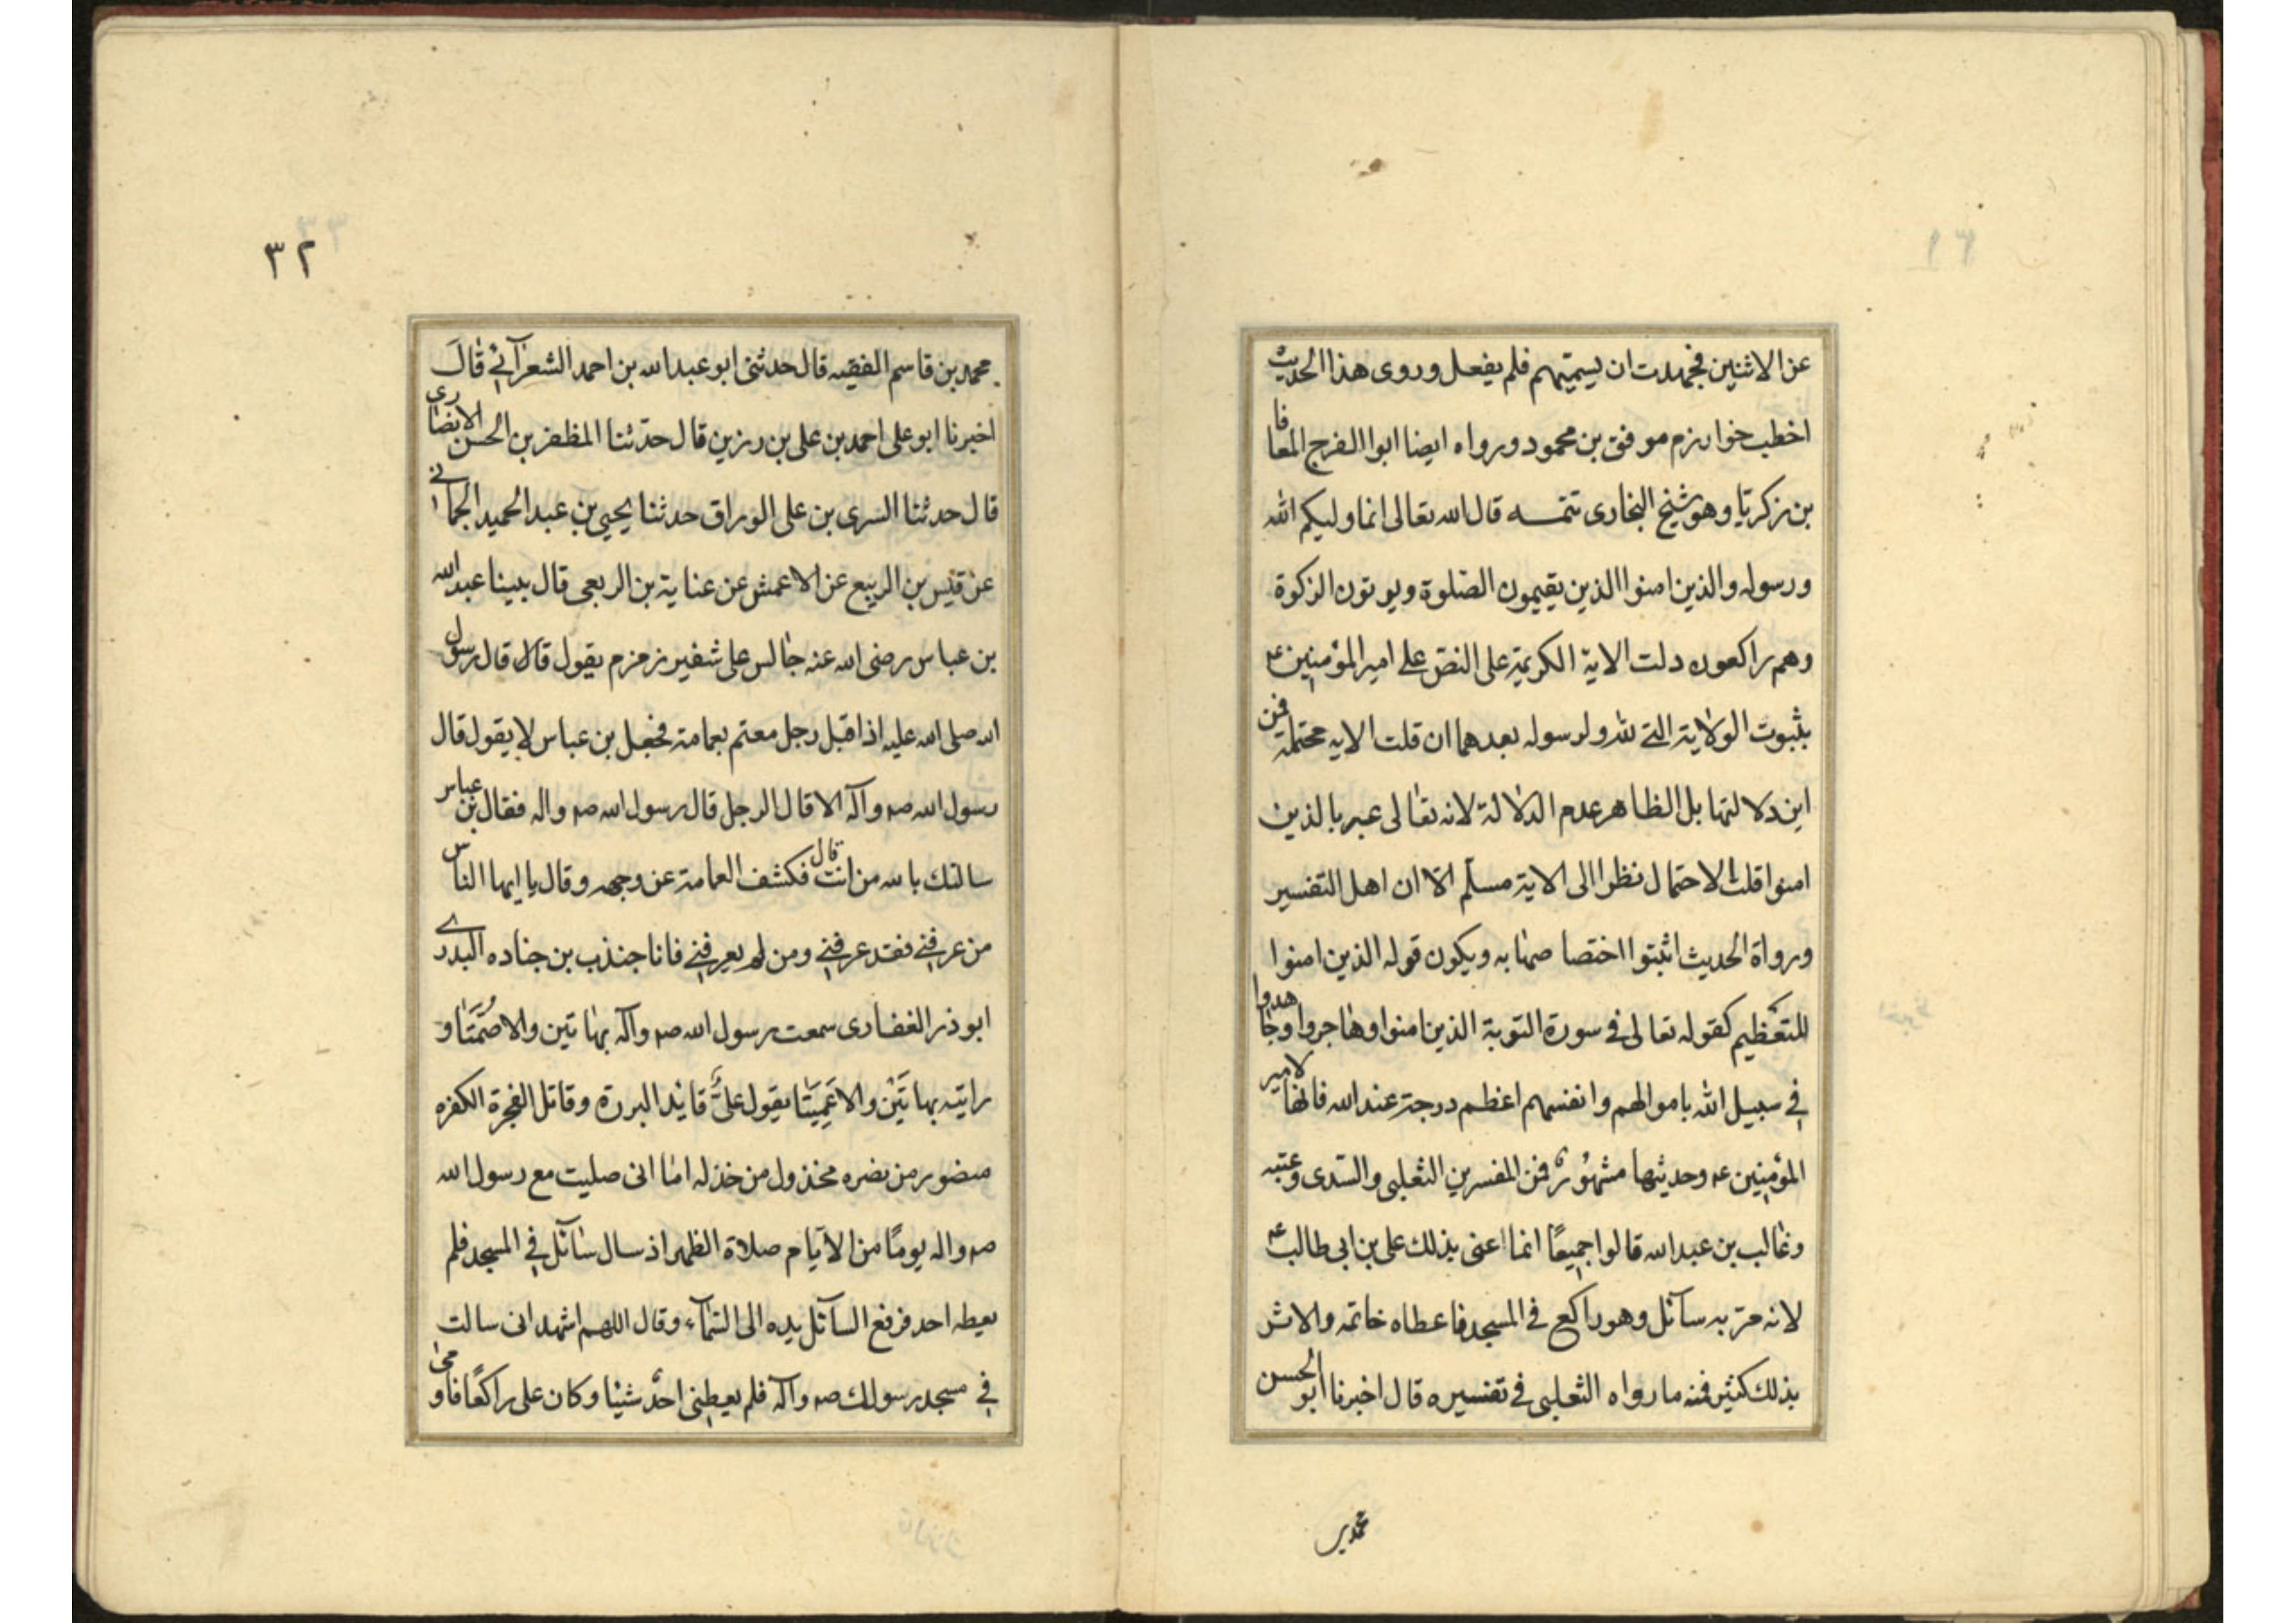 عن الاثنين فجهدت ان يسميهم فلم يفعل وروى هذا الحديث
اخطب خوارزم موفق بن محمود ورواه ايضا ابوا الفرج المعافا
بن زكريا وهو شيخ البخارى تتمـــه قال الله تعالى انما وليكم الله
ورسوله والذين امنوا الذين يقيمون الصلوة ويوتون الزكوة
وهم راكعون دلت الاية الكريمة على النص على امير المؤمنين ع
بثبوت الولاية التى لله ولرسوله بعدهما ان قلت الايه محتملة فمن
اين دلالتها بل الظاهر عدم الدلالة لانه تعالى عبر بالذين
امنوا قلت الاحتمال نظرا الى الاية مسلم الا ان اهل التفسير
ورواة الحديث اثبتوا اختصاصها به ويكون قوله الذين امنوا
للتعظيم كقوله تعالى فى سورة التوبة الذين امنوا وهاجروا وجاهدوا
فى سبيل الله باموالهم وانفسهم اعظم درجة عند الله فانها لامير
المؤمنين ع وحديثها مشهور فمن المفسرين الثعلبى والسدى وعتبه
وغالب بن عبد الله قالوا جميعًا انما اعنى بذلك على بن ابى طالب ع
لانه مر به سآئل وهو راكع فى المسجد فاعطاه خاتمه والاثر
بذلك كثير فمنه ما رواه الثعلبى فى تفسيره قال اخبرنا ابو الحسن
محمد بن
٣٢
محمد بن قاسم الفقيه قال حدثنى ابو عبد الله بن احمد الشعرآنى قال
اخبرنا ابو على احمد بن على بن رزين قال حدثنا المظفر بن الحسن الانصارى
قال حدثنا السرى بن على الوراق حدثنا يحيى بن عبد الحميد الجمانى
عن قيس بن الربيع عن الاعمش عن عناية بن الربعى قال بينا عبد الله
بن عباس رضى الله عنه جالس على شفير زمزم يقول قال قال رسول
الله صلى الله عليه اذ اقبل رجل معتم بعمامة فجعل بن عباس لا يقول قال
رسول الله صم وآله الا قال الرجل قال رسول الله صم واله فقال بن عباس
سالتك بالله من انت قال فكشف العمامة عن وجهه وقال يا ايها الناس
من عرفنى فقد عرفنى ومن لم يعرفنى فانا جندب بن جناده البدرى
ابو ذر الغفارى سمعت رسول الله صم وآله بهاتين والا صُمَّتَا و
رايته بهاتَيْن والا عَمِيَتَا يقول علىٌّ قائد البررة وقاتل الفجرة الكفره
منصور من نصره مخذول من خذله اما انى صليت مع رسول الله
صم واله يومًا من الايام صلاة الظهر اذ سال سآئل فى المسجد فلم
يعطه احد فرفع السآئل يده الى السمآء وقال اللهم اشهد انى سالت
فى مسجد رسولك صم وآله فلم يعطنى احدٌ شيئا وكان على راكعًا فاومى